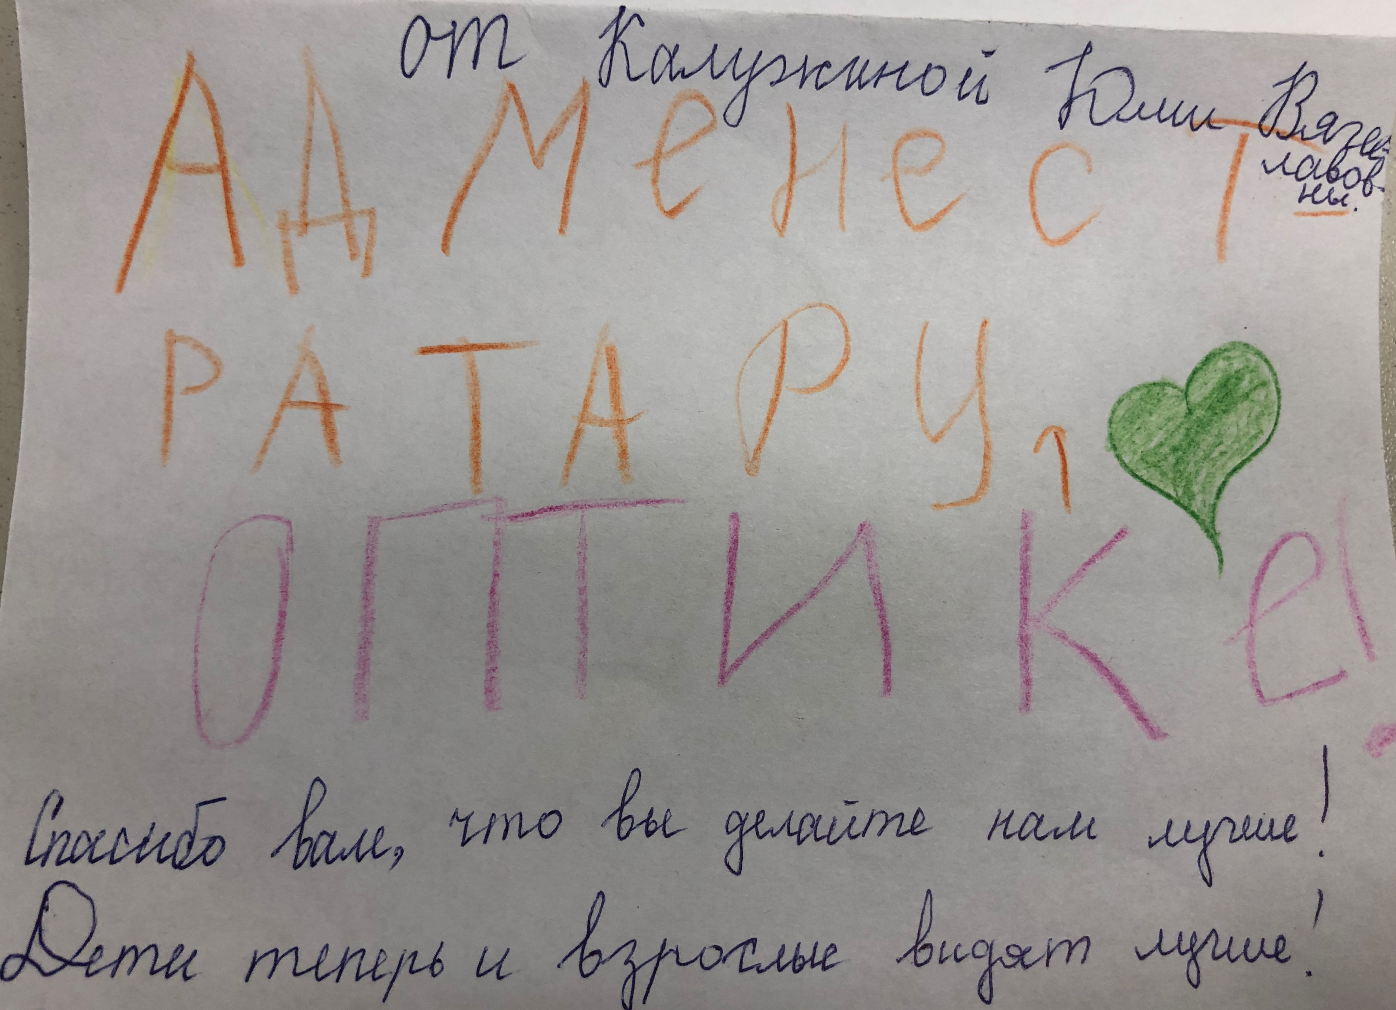 от Калужиной Юлии Вячес-
лавов-
ны.
АДМеНеСТ-
РАТАРУ,
ОПТИКе!
Спасибо вам, что вы делайте нам лучше!
Дети теперь и взрослые видят лучше!